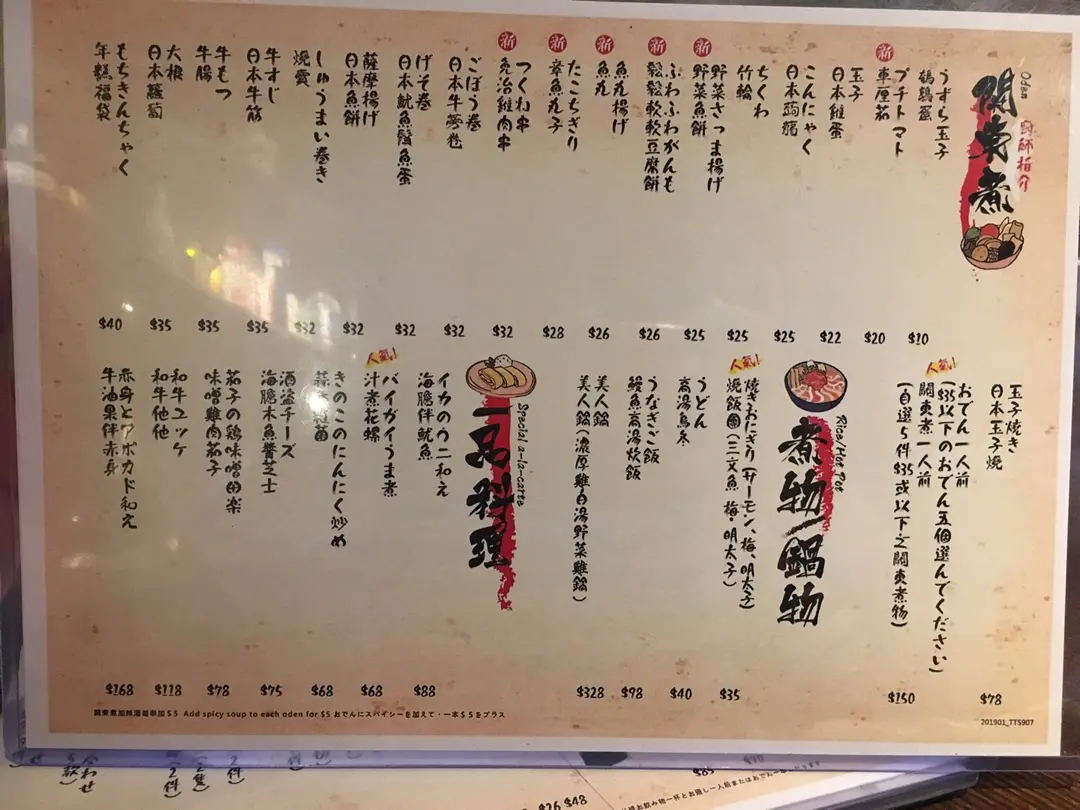 Oden
關東煮
廚師推介
うずら玉子
鵪鶉蛋
$10
新
プチトマト
車厘茄
$20
玉子
日本雞蛋
$22
こんにゃく
日本蒟蒻
$25
ちくわ
竹輪
$25
新
野菜さつま揚げ
野菜魚餅
$25
新
ふわふわがんも
鬆鬆軟軟豆腐餅
$26
新
魚丸揚げ
魚丸
$26
新
たこちぎり
章魚丸子
$28
新
つくね串
免治雞肉串
$32
ごぼう巻
日本牛蒡卷
$32
げそ巻
日本魷魚鬚魚蛋
$32
薩摩揚げ
日本魚餅
$32
しゅうまい巻き
燒賣
$32
牛すじ
日本牛筋
$35
牛もつ
牛腸
$35
大根
日本蘿蔔
$35
もちきんちゃく
年糕福袋
$40
玉子焼き
日本玉子燒
$78
人氣!
おでん一人前
($35以下のおでん五個選んでください)
關東煮一人前
(自選5件$35或以下之關東煮物)
$150
Rice/Hot Pot
煮物/鍋物
人氣!
焼きおにぎり(サーモン、梅、明太子)
燒飯團(三文魚、梅、明太子)
$35
うどん
高湯烏冬
$40
うなぎご飯
鰻魚高湯炊飯
$98
美人鍋
美人鍋(濃厚雞白湯野菜雞鍋)
$328
Special a-la-carte
一品料理
イカのウニ和え
海膽伴魷魚
$88
人氣!
バイガイうま煮
汁煮花螺
$68
きのこのにんにく炒め
蒜炒雜菌
$68
酒盗チーズ
海膽木魚醬芝士
$75
茄子の鶏味噌田楽
味噌雞肉茄子
$78
和牛ユッケ
和牛他他
$118
赤身とアボカド和え
牛油果伴赤身
$168
關東煮加辣湯每串加$5 Add spicy soup to each oden for $5 おでんにスパイシーを加えて・一本$5をプラス
201901_TTS907
$26 $48
$85